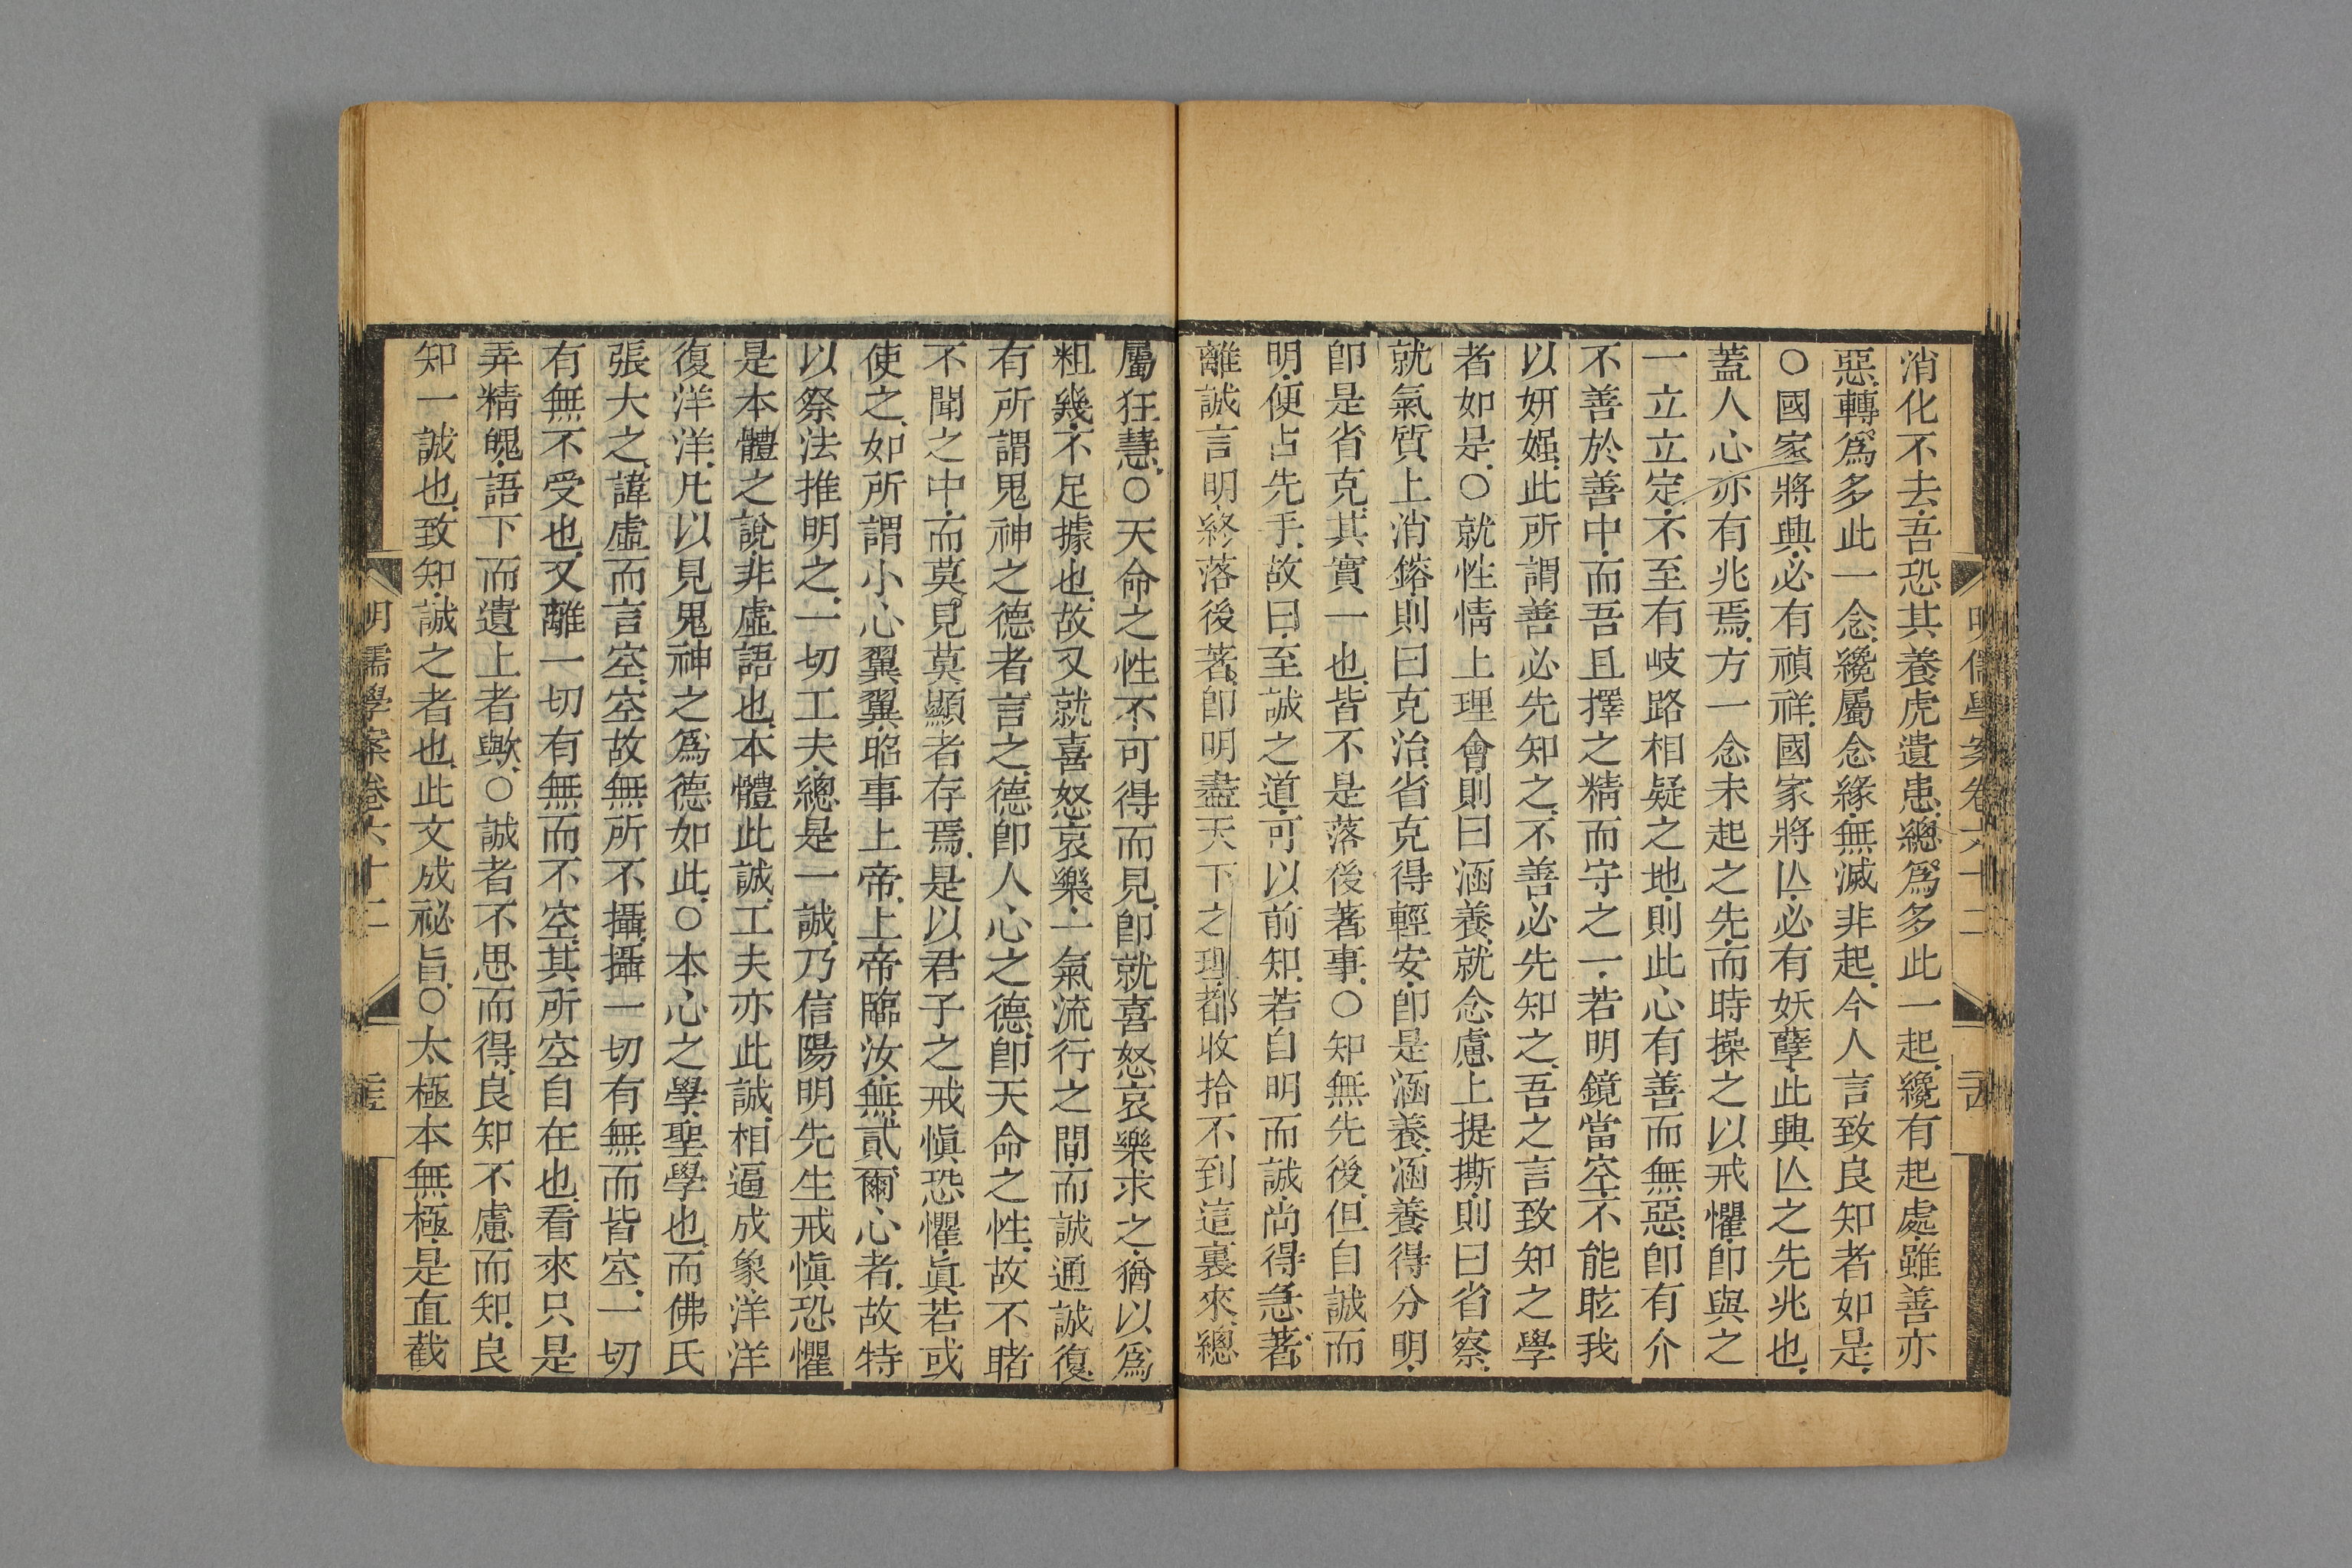 明儒學案卷六十二
消化不去吾恐其養虎遺患總爲多此一起纔有起處雖善亦
惡轉爲多此一念纔屬念緣無滅非起今人言致良知者如是
〇國家將興必有禎祥國家將亾必有妖孽此興亾之先兆也
蓋人心亦有兆焉方一念未起之先而時操之以戒懼卽與之
一立立定不至有岐路相疑之地則此心有善而無惡卽有介
不善於善中而吾且擇之精而守之一若明鏡當空不能眩我
以妍媸此所謂善必先知之不善必先知之吾之言致知之學
者如是〇就性情上理會則曰涵養就念慮上提撕則曰省察
就氣質上消鎔則曰克治省克得輕安卽是涵養涵養得分明
卽是省克其實一也皆不是落後著事〇知無先後但自誠而
明便占先手故曰至誠之道可以前知若自明而誠尚得急著
離誠言明終落後著卽明盡天下之理都收拾不到這裏來總
屬狂慧〇天命之性不可得而見卽就喜怒哀樂求之猶以爲
粗幾不足據也故又就喜怒哀樂一氣流行之間而誠通誠復
有所謂鬼神之德者言之德卽人心之德卽天命之性故不睹
不聞之中而莫見莫顯者存焉是以君子之戒愼恐懼眞若或
使之如所謂小心翼翼昭事上帝上帝臨汝無貳爾心者故特
以祭法推明之一切工夫總是一誠乃信陽明先生戒愼恐懼
是本體之說非虛語也本體此誠工夫亦此誠相逼成象洋洋
復洋洋凡以見鬼神之爲德如此〇本心之學聖學也而佛氏
張大之諱虛而言空空故無所不攝攝一切有無而皆空一切
有無不受也又離一切有無而不空其所空自在也看來只是
弄精魄語下而遺上者歟〇誠者不思而得良知不慮而知良
知一誠也致知誠之者也此文成祕旨〇太極本無極是直截
明儒學案卷六十二